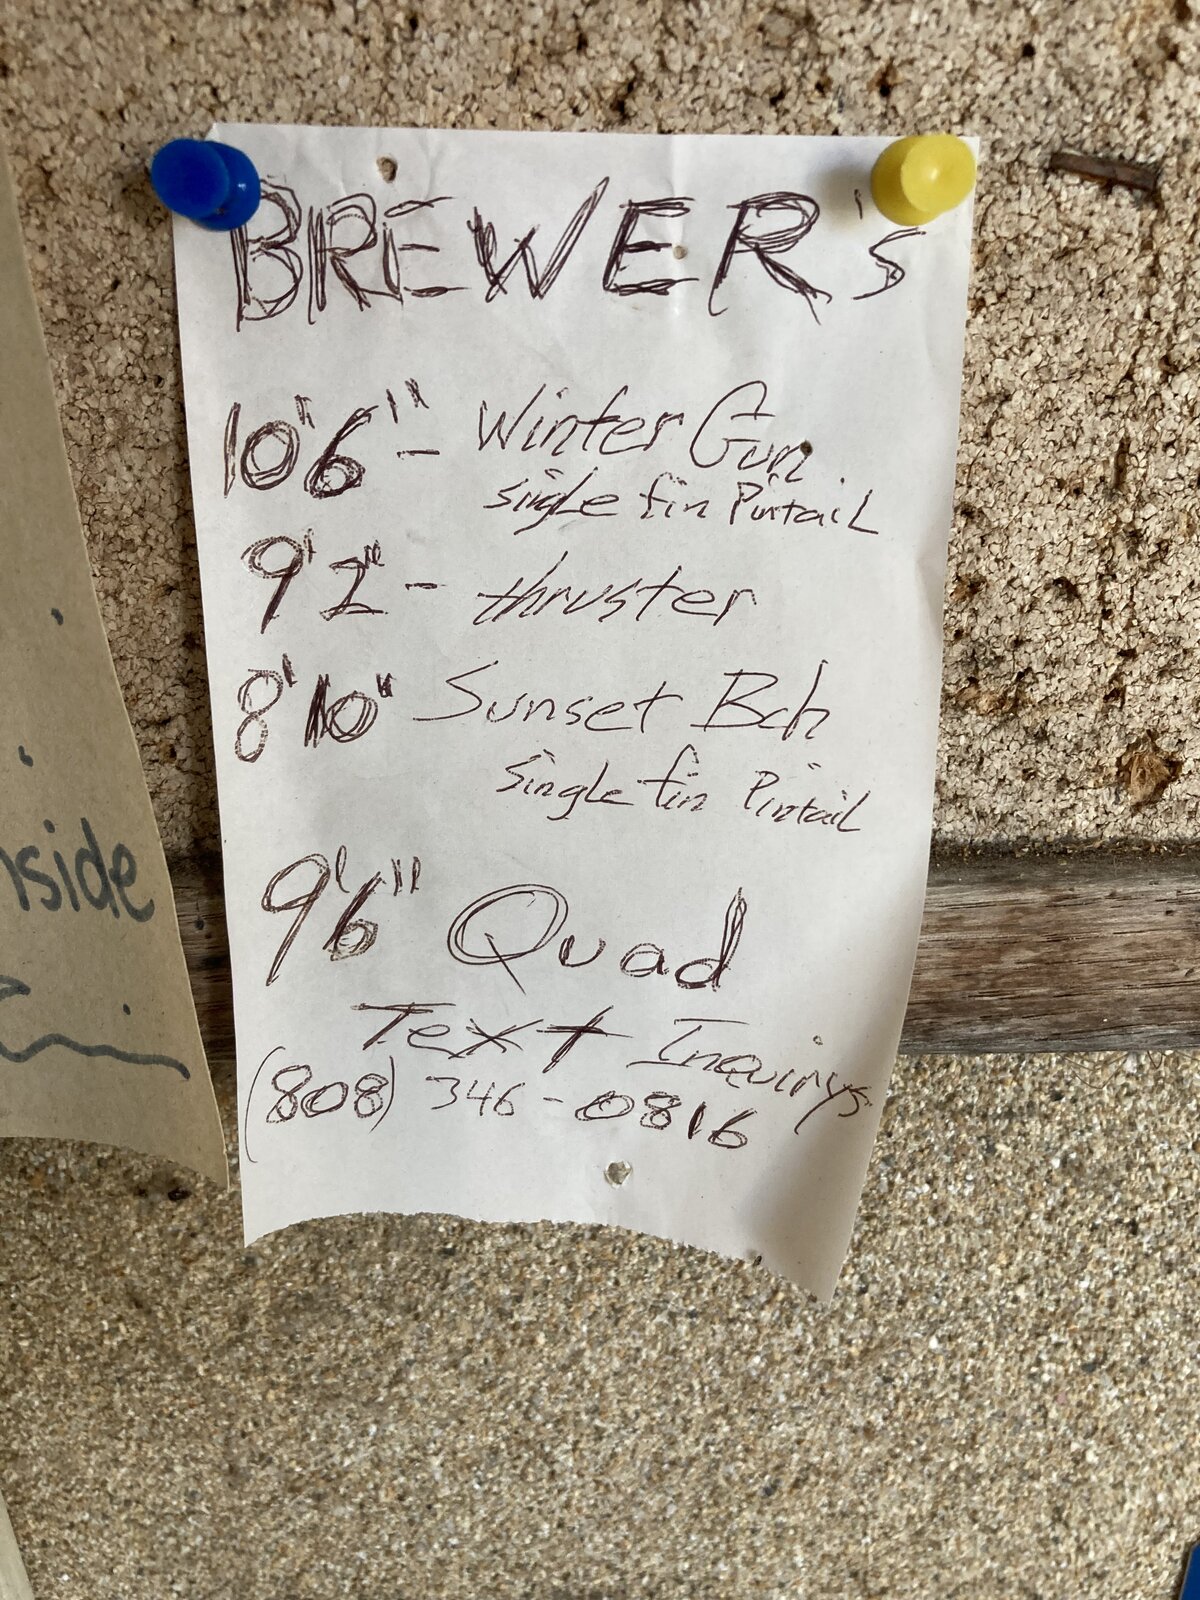 BREWER'S
10'6" - Winter Gun
single fin Pintail
9'2" - thruster
8'10" Sunset Bch
single fin Pintail
9'6" Quad
Text Inquirys
(808) 346-0816
nside